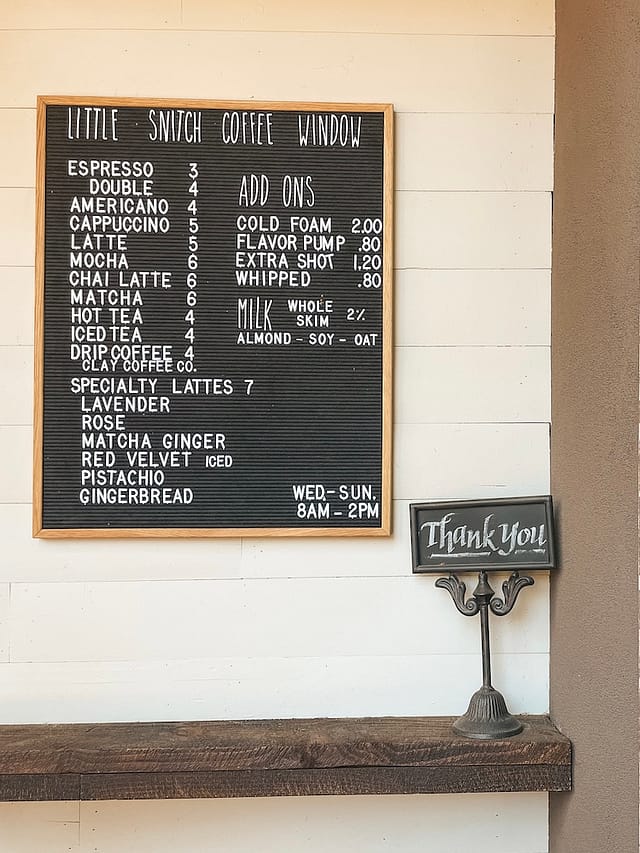 LITTLE SNITCH COFFEE WINDOW
ESPRESSO 3
DOUBLE 4
AMERICANO 4
CAPPUCCINO 5
LATTE 5
MOCHA 6
CHAI LATTE 6
MATCHA 6
HOT TEA 4
ICED TEA 4
DRIP COFFEE 4
CLAY COFFEE CO.
SPECIALTY LATTES 7
LAVENDER
ROSE
MATCHA GINGER
RED VELVET ICED
PISTACHIO
GINGERBREAD
ADD ONS
COLD FOAM 2.00
FLAVOR PUMP .80
EXTRA SHOT 1.20
WHIPPED .80
MILK WHOLE 2%
SKIM
ALMOND - SOY - OAT
WED.- SUN.
8AM - 2PM
Thank You